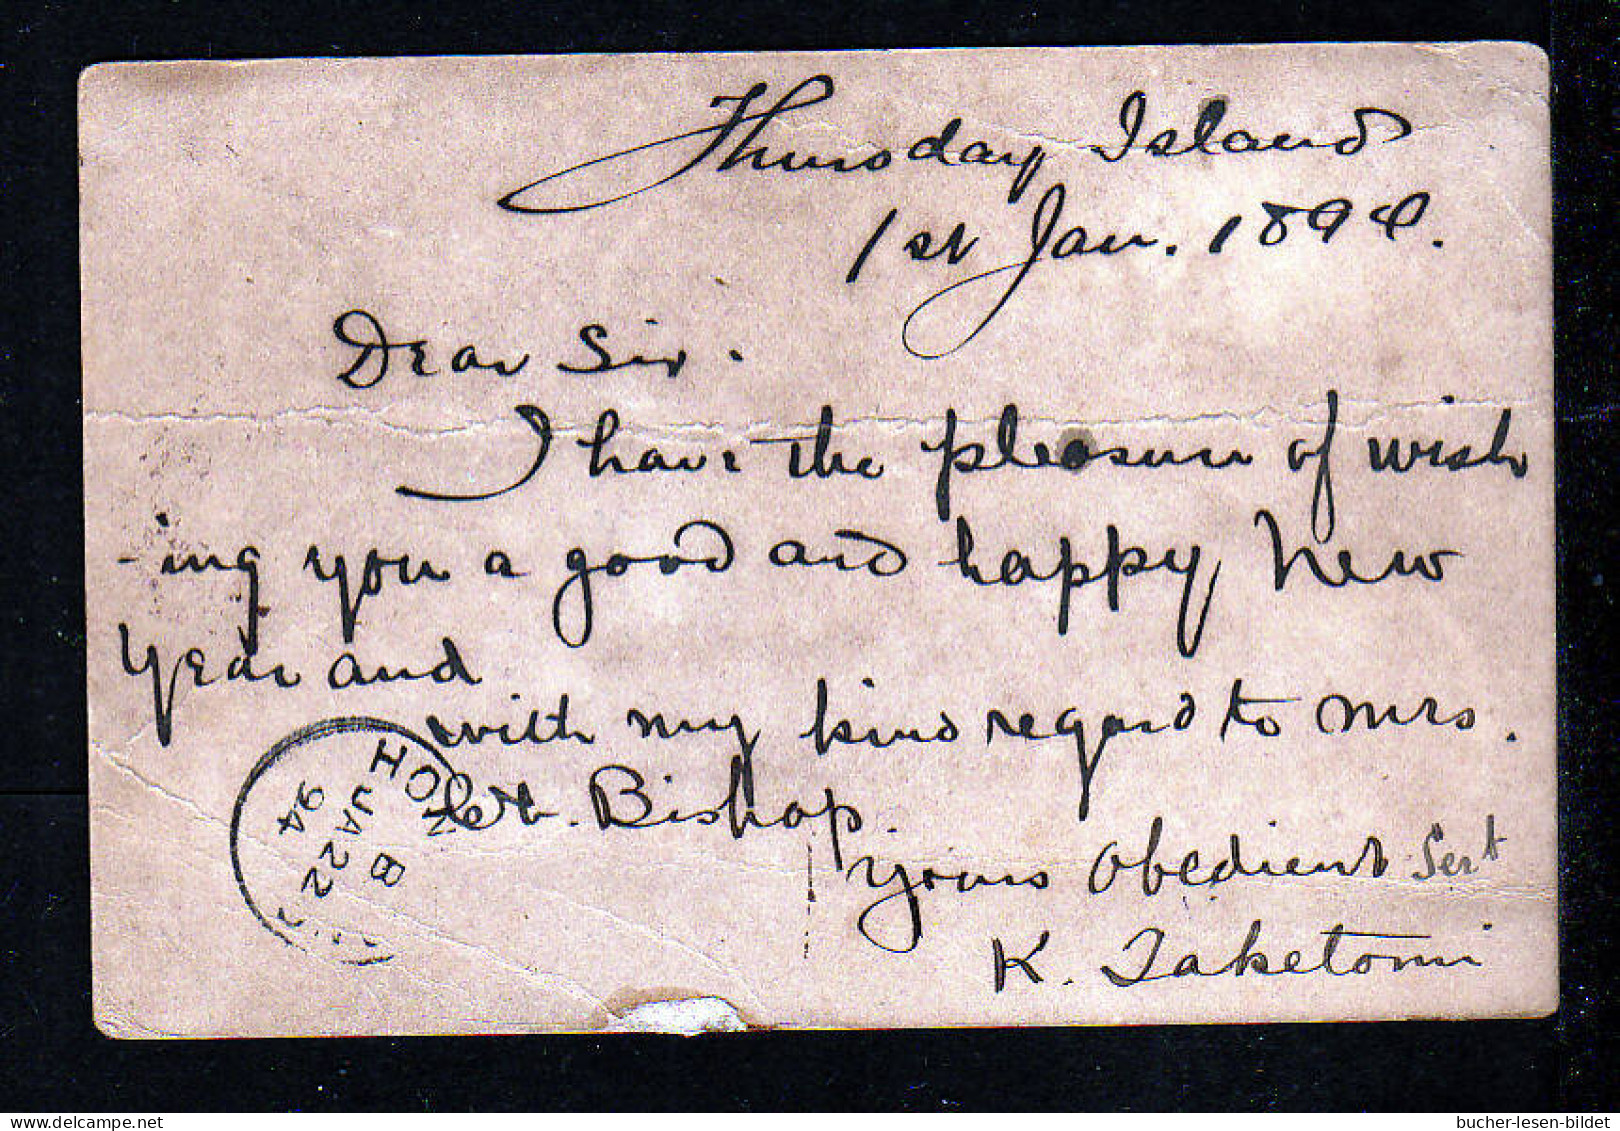 Thursday Island
1st Jan. 1894.
Dear Sir.
I have the pleasure of wish
-ing you a good and happy New
Year and
with my kind regard to Mrs.
Bishop.
Yours Obedient Sert
K. Taketomi
HO
B
JA 22
94
bucher-lesen-bildet